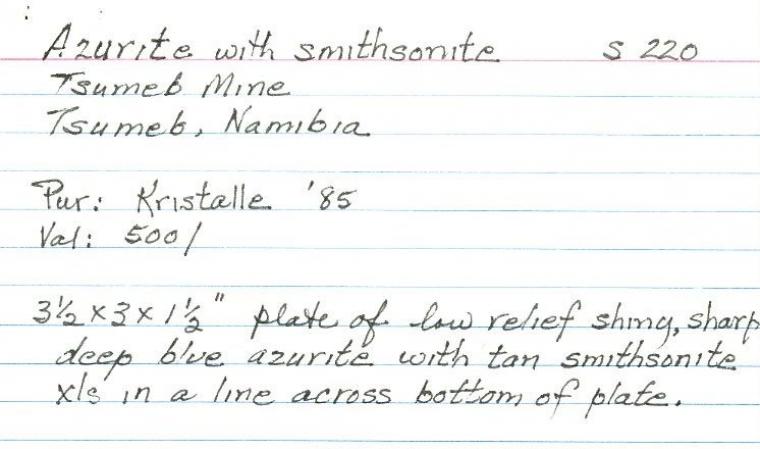 Azurite with smithsonite S 220
Tsumeb Mine
Tsumeb, Namibia
Pur: Kristalle '85
Val: 500/
3½ x 3 x 1½" plate of low relief shiny, sharp
deep blue azurite with tan smithsonite
xls in a line across bottom of plate.